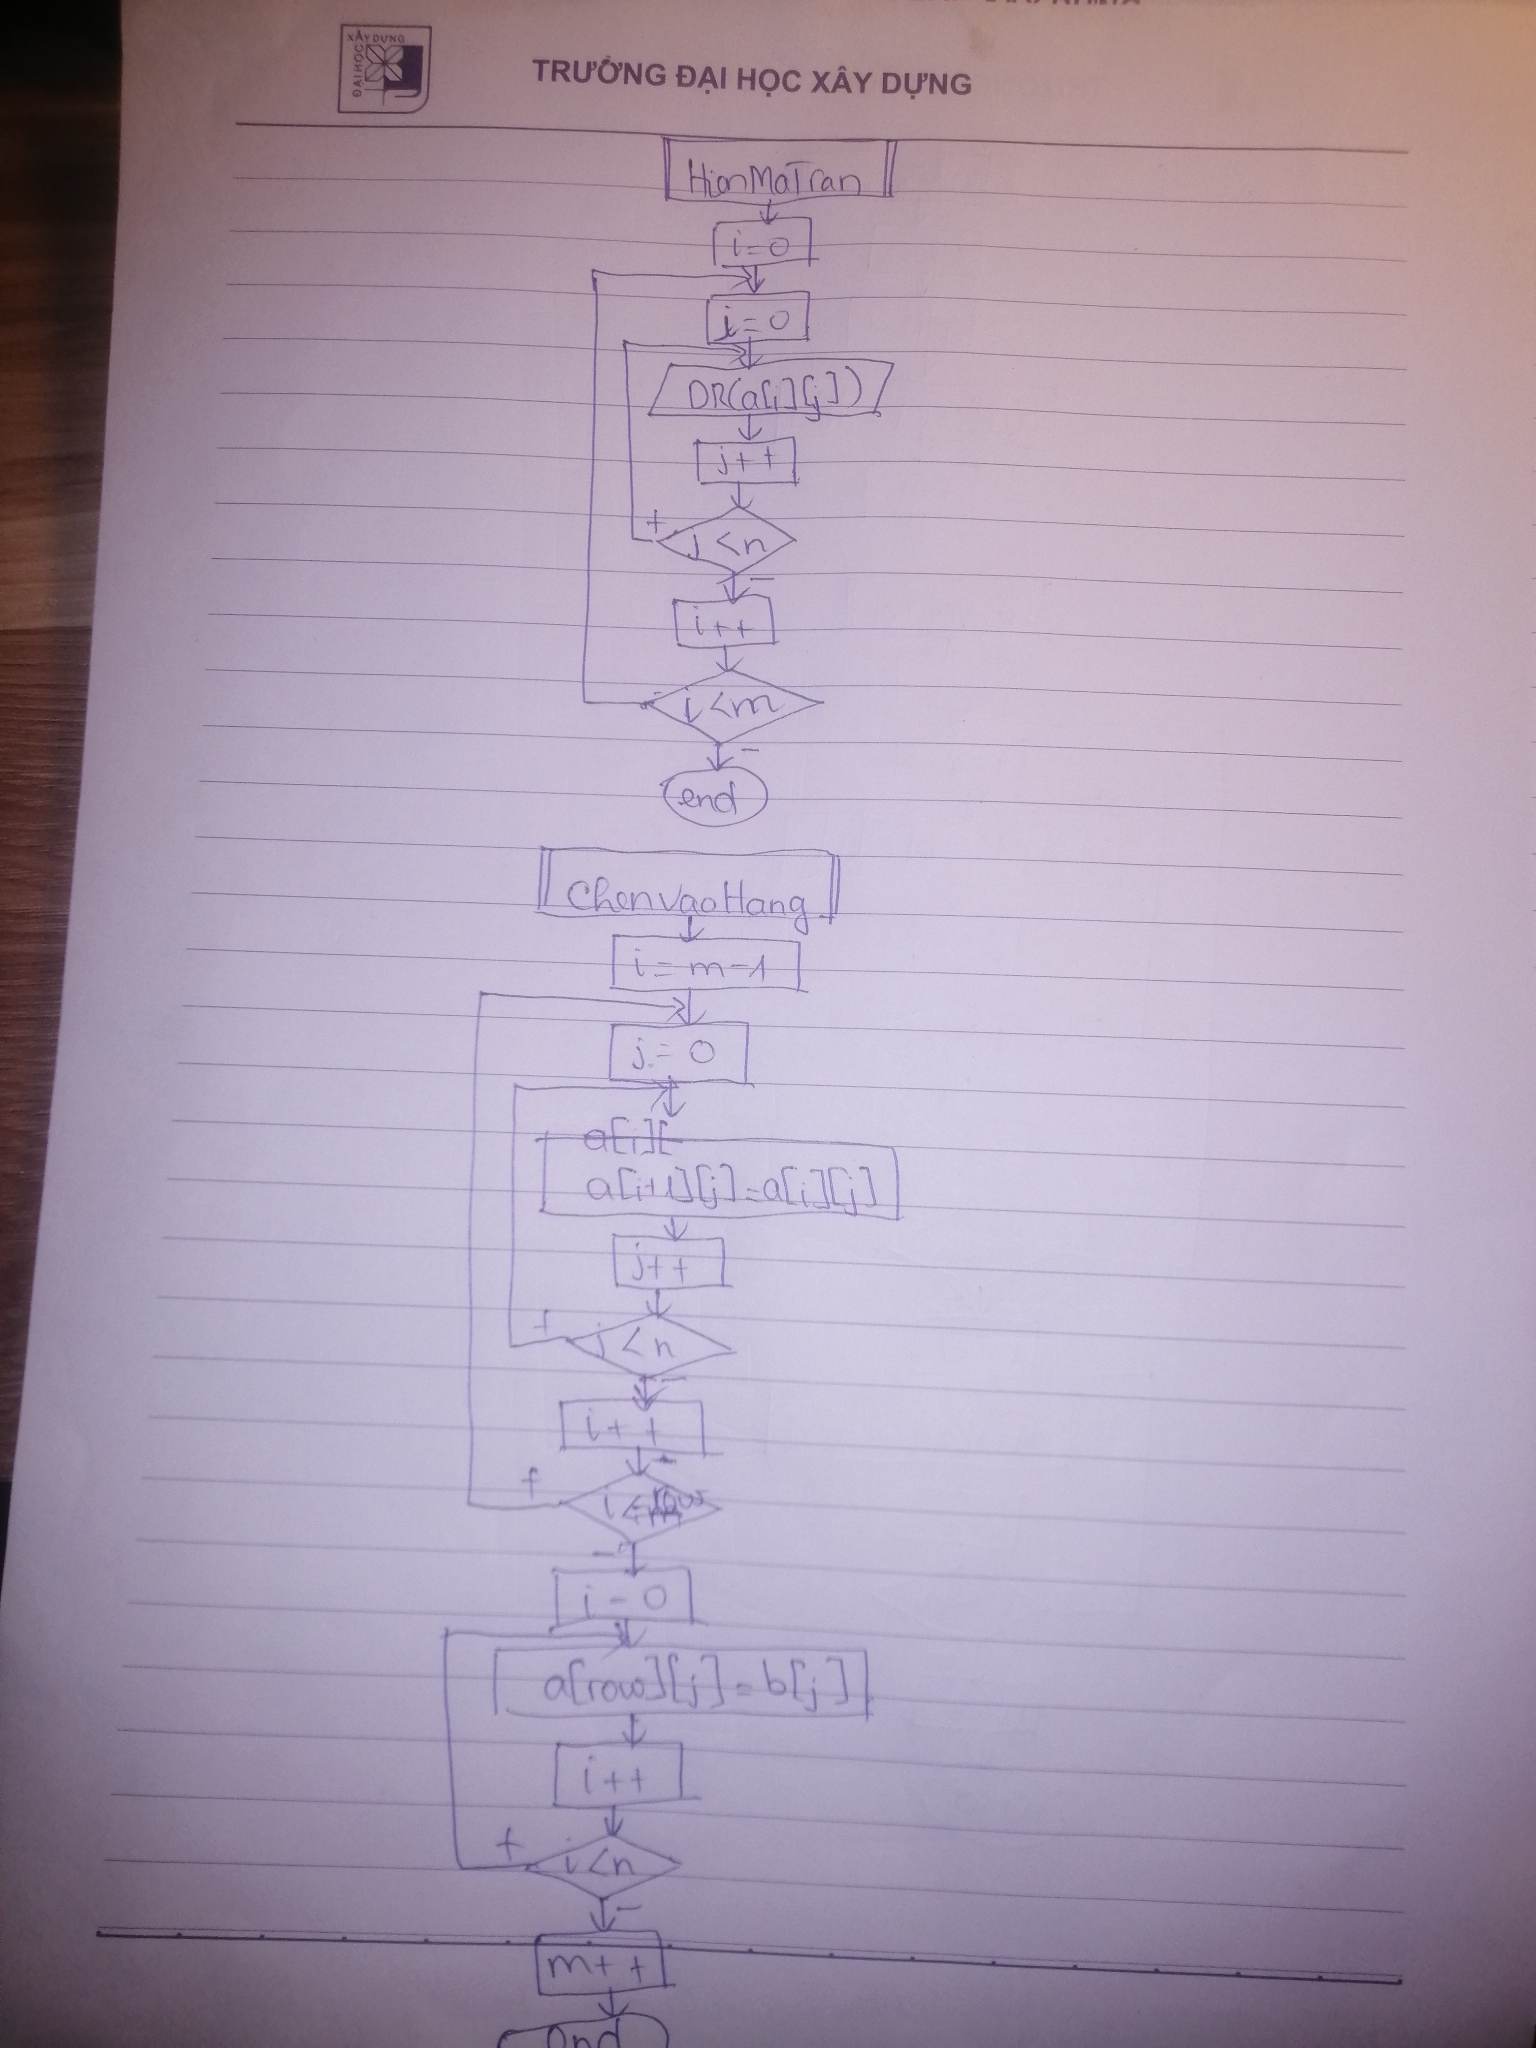 XÂY DỰNG
ĐẠI HỌC
TRƯỜNG ĐẠI HỌC XÂY DỰNG
HienMaTran
i=0
j=0
DR(a[i][j])
j++
+
j<n
-
i++
i<m
-
end
ChenVaoHang
i=m-1
j=0
a[i][
a[i+1][j]=a[i][j]
j++
+
j<n
-
i++
+
i<
-
i=0
a[row][j]=b[j]
i++
+
i<n
-
m++
end